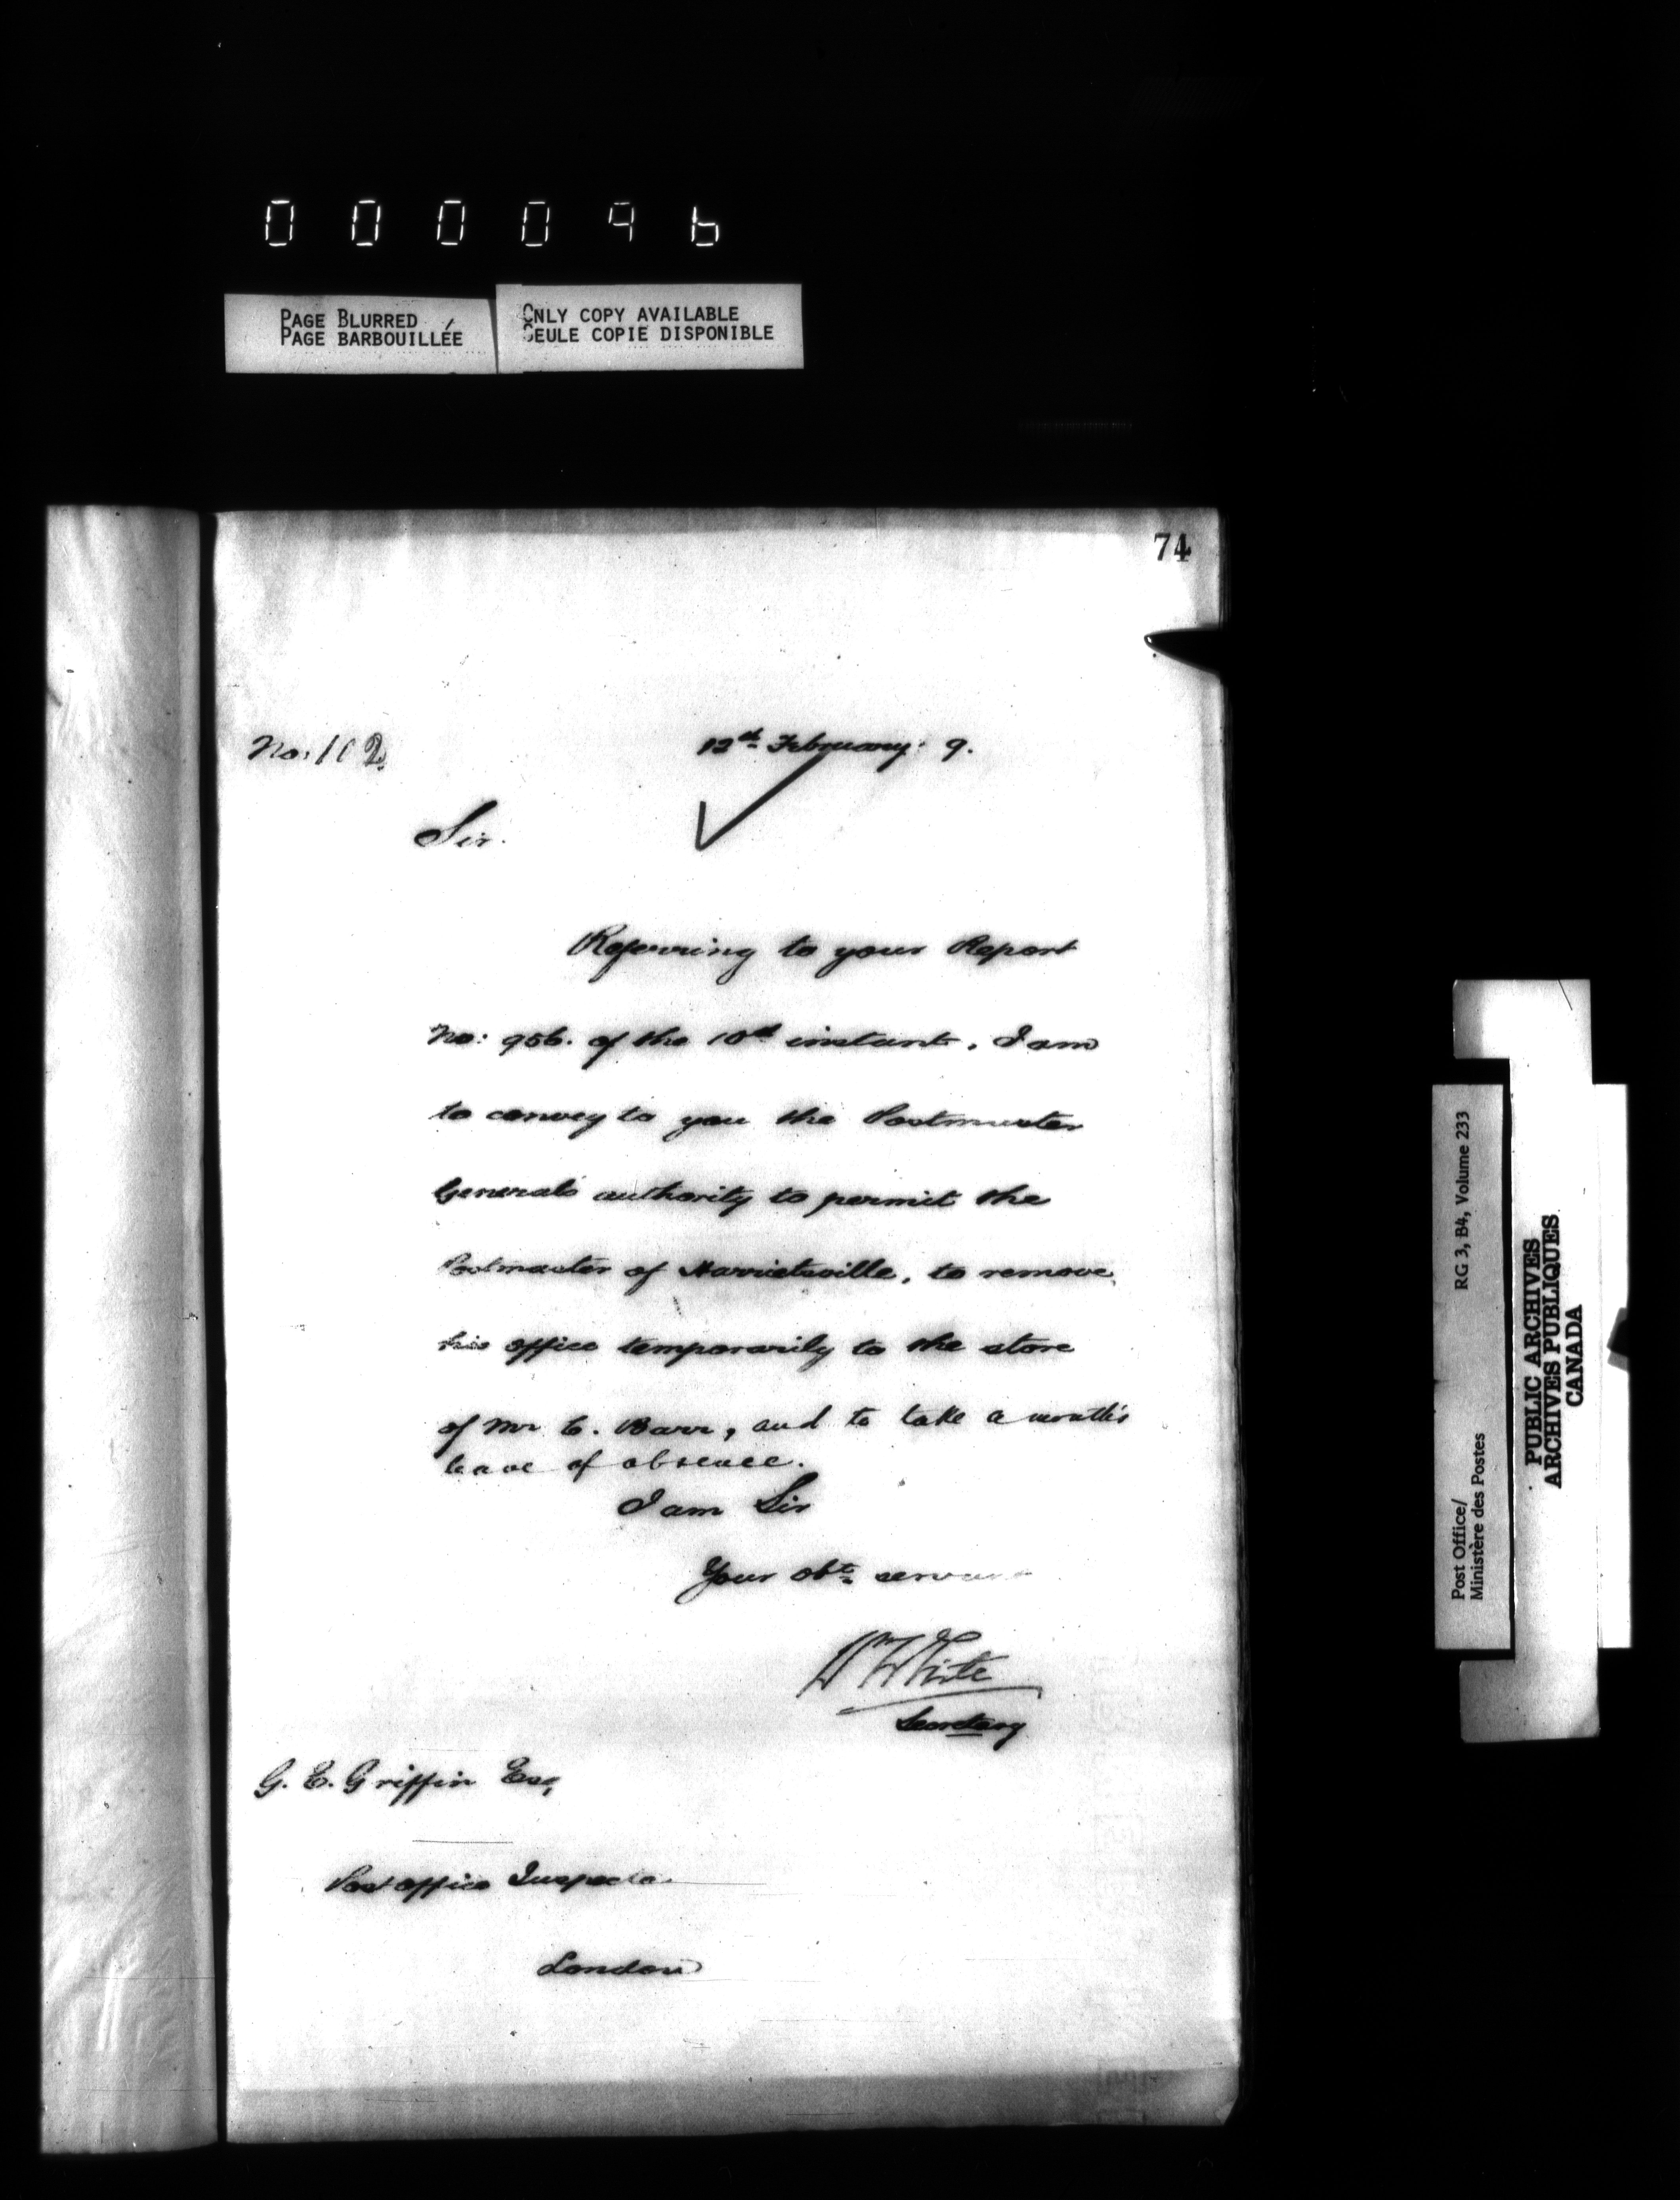 000096
PAGE BLURRED
PAGE BARBOUILLÉE
ONLY COPY AVAILABLE
SEULE COPIE DISPONIBLE
74
No: 102
12th February: 9.
Sir.
Referring to your Report
No: 956. of the 10th instant, I am
to convey to you the Postmaster
Generals authority to permit the
Postmaster of Harrietsville, to remove
his office temporarily to the store
of Mr C. Barr, and to take a month's
leave of absence.
I am Sir
Your obt. servant
Wm White
Secretary
G. E. Griffin Esq,
Post office Inspector
London
Post Office/
Ministère des Postes
RG 3, B4, Volume 233
PUBLIC ARCHIVES
ARCHIVES PUBLIQUES
CANADA